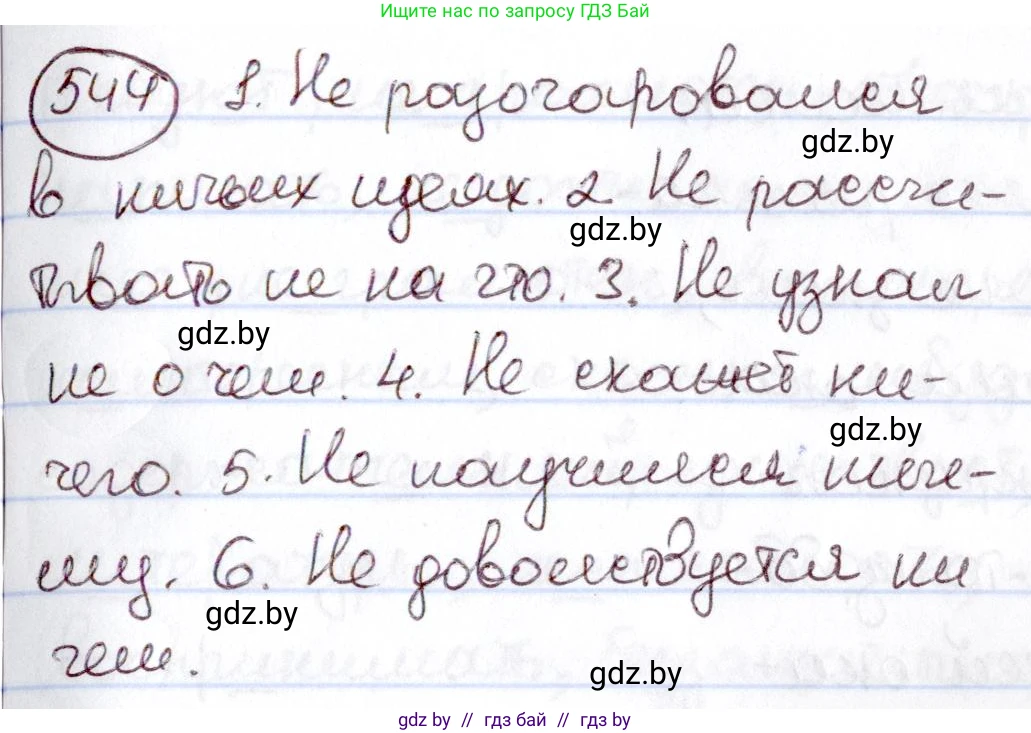 Ищите нас по запросу ГДЗ Бай
544 1. Не разочаровался
gdz.by
в ничьих идеях. 2 Не рассчи-
gdz.by
тывать не на что. 3. Не узнал
gdz.by
не о чем. 4. Не скажет ни-
gdz.by
чего. 5. Не научился ничe-
му. 6. Не довольствуется ни
gdz.by
чем.
gdz.by
gdz.by // гдз бай // гдз by